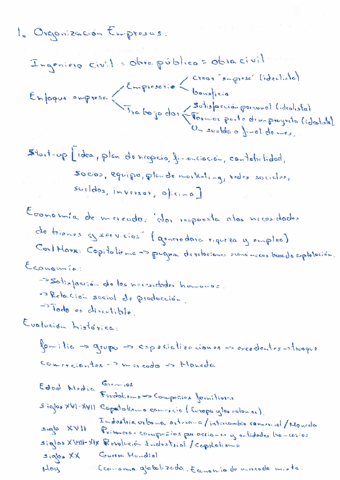 1. Organización Empresas:
Ingeniero civil = obra pública = obra civil
Enfoque empresa
Empresario
crear "empresa" (idealista)
beneficio
Trabajador
Satisfacción personal (idealista)
Formar parte de un proyecto (idealista)
Un sueldo a final de mes.
Start-up [idea, plan de negocio, financiación, contabilidad,
socios, equipo, plan de marketing, redes sociales,
sueldos, inversor, oficina]
Economía de mercado: "dar respuesta a las necesidades
de bienes y servicios" (generadora riqueza y empleo)
Carl Marx: Capitalismo → de relaciones económicas basada explotación.
Economía:
→ Satisfacción de las necesidades humanas.
→ Relación social de producción.
→ Todo es discutible.
Evolución histórica:
familia → grupo → especializaciones → excedentes → trueque
comerciantes → mercado → Moneda
Edad Media Gremios
Feudalismo → Compañías familiares
siglos XVI-XVII Capitalismo comercio (Europa y las colonias).
Industria urbana artesana / intercambio comercial / Moneda
siglo XVII Primeras compañías por acciones y entidades bancarias
siglos XVIII-XIX Revolución Industrial / Capitalismo
siglo XX Guerra Mundial
Hoy Economía globalizada. Economía de mercado mixta.